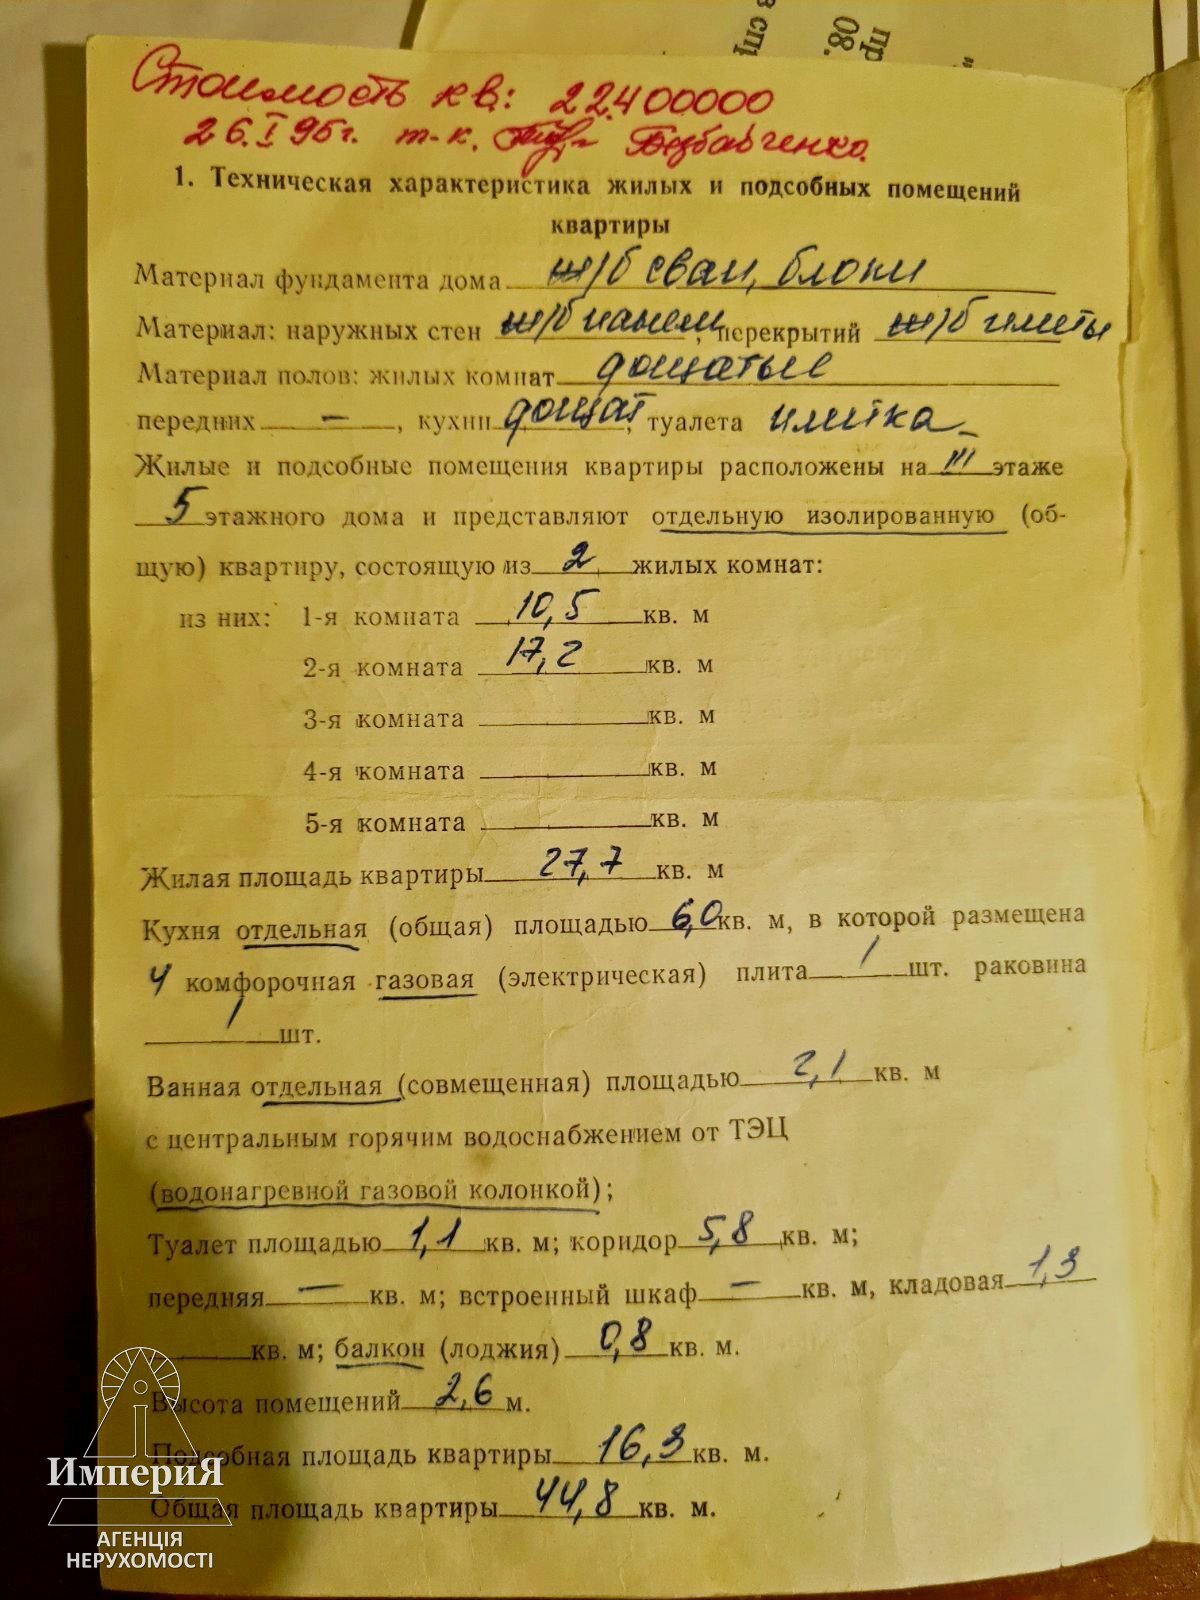 в спр
пр
08.
Стоимость кв.: 22400000
26.I 95г. т-к. Безбабченко.
1. Техническая характеристика жилых и подсобных помещений
квартиры
Материал фундамента дома ж/б сваи, блоки
Материал: наружных стен ж/б панели, перекрытий ж/б плиты
Материал полов: жилых комнат дощатые
передних —, кухни дощат, туалета плитка
Жилые и подсобные помещения квартиры расположены на III этаже
5 этажного дома и представляют отдельную изолированную (об-
щую) квартиру, состоящую из 2 жилых комнат:
из них: 1-я комната 10,5 кв. м
2-я комната 17,2 кв. м
3-я комната ______ кв. м
4-я комната ______ кв. м
5-я комната ______ кв. м
Жилая площадь квартиры 27,7 кв. м
Кухня отдельная (общая) площадью 6,0 кв. м, в которой размещена
4 комфорочная газовая (электрическая) плита 1 шт. раковина
1 шт.
Ванная отдельная (совмещенная) площадью 2,1 кв. м
с центральным горячим водоснабжением от ТЭЦ
(водонагревной газовой колонкой);
Туалет площадью 1,1 кв. м; коридор 5,8 кв. м;
передняя — кв. м; встроенный шкаф — кв. м, кладовая 1,3
______ кв. м; балкон (лоджия) 0,8 кв. м.
Высота помещений 2,6 м.
Подсобная площадь квартиры 16,3 кв. м.
Общая площадь квартиры 44,8 кв. м.
ИмпериЯ
АГЕНЦІЯ
НЕРУХОМОСТІ